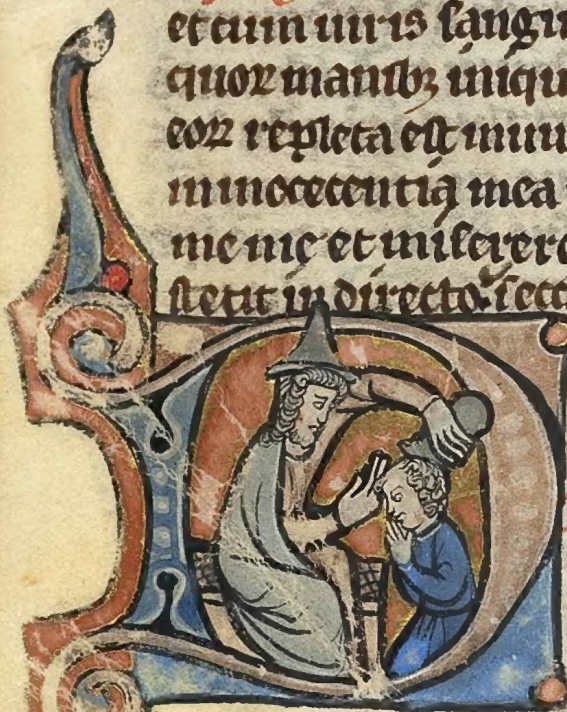 et cum uiris sangui
quoꝝ manibꝫ iniqui
eoꝝ repleta est mun
in nocecentia mea
me me et miserere
stetit in directo. i ecc